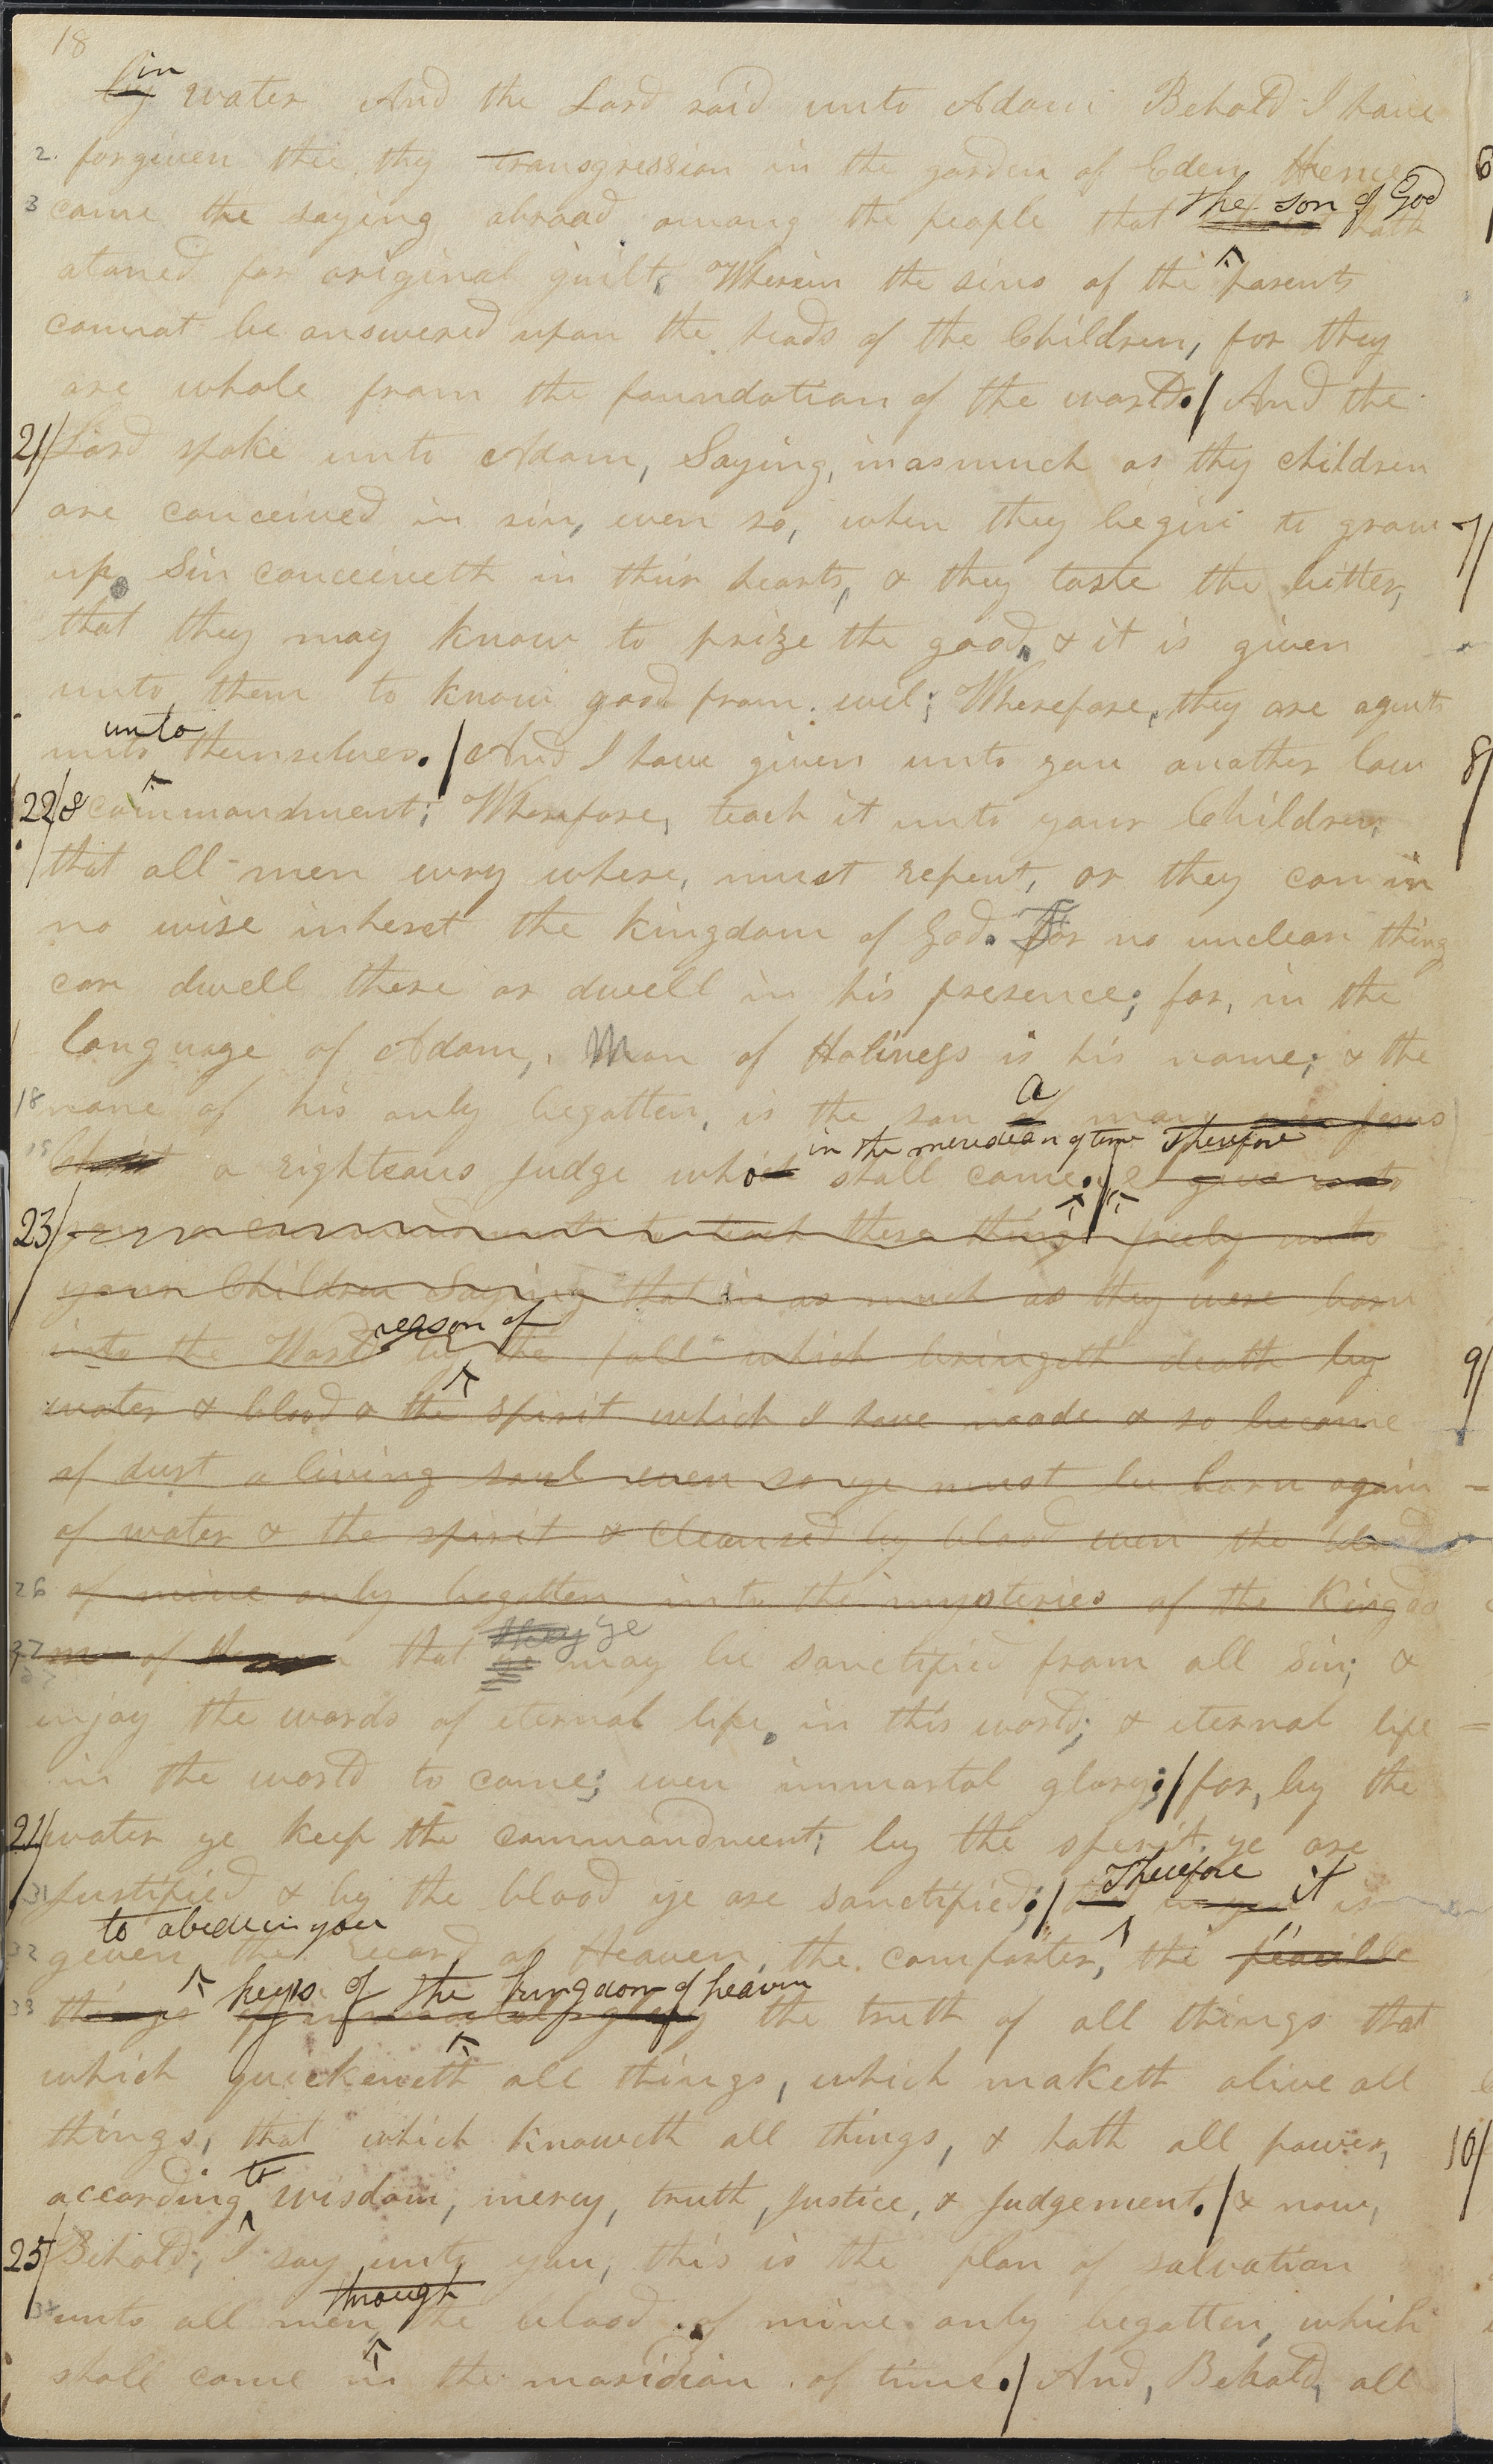 18
in
by water And the Lord said unto Adam Behold I have
2. forgiven thee thy transgression in the garden of Eden Hence
the son of God
3 came the saying abroad among the people that hath
atoned for original guilt, Wherein the sins of the parents
cannot be answered upon the heads of the Children, for they
are whole from the foundation of the world./ And the
21/ Lord spoke unto Adam, Saying, inasmuch as thy children
are conceived in sin, even so, when they begin to grow
up, Sin conceiveth in their hearts, & they taste the bitter,
that they may know to prize the good, & it is given
unto them to know good from evil; Wherefore, they are agents
unto
unto themselves./ And I have given unto you another law
22/ & commandment; Wherefore, teach it unto your Children,
that all men evry where, must repent, or they can in
no wise inheret the kingdom of God. For no unclean thing
can dwell there or dwell in his presence; for, in the
language of Adam, Man of Holiness is his name; & the
a
18 name of his only begotten, is the son of man even Jesus
in the meridian of time Therefore
Christ a righteous Judge which shall come./ I give unto
23/ you a commandment to teach these things freely unto
your Children Saying that in as much as they were born
reason of
into the World by the fall which bringeth death by
water & blood & the spirit which I have made & so became
of dust a living soul even so ye must be born again
of water & the spirit & cleansed by blood even the blood
26 of mine only begotten into the mysteries of the Kingdo
they ye
27 m of Heaven that ye may be sanctified from all Sin; &
enjoy the words of eternal life, in this world; & eternal life
in the world to come; even immortal glory;/ for, by the
21/ water ye keep the commandment; by the spirit ye are
Therefore it
31 Justified & by the blood ye are sanctified;/ is
to abide in you
32 given the record of Heaven, the comforter, the peacible
keys of the kingdom of heaven
33 things of immortal glory the truth of all things that
which quickeneth all things, which maketh alive all
things, that which knoweth all things, & hath all power,
to
according wisdom, mercy, truth, Justice, & Judgement./ & now,
25/ Behold, I say unto you, this is the plan of salvation
through
unto all men, the blood of mine only begotten, which
shall come in the maridian of time./ And, Behold, all
6
7/
8/
9/
10/